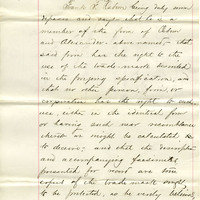 Frank L. Palmer being duly sworn
deposes and says that he is a
member of the firm of Palmer
and Alexander above named that
said firm has the right to the
use of the trade mark described
in the foregoing specification, and
that no other person, firm, or
corporation has the right to such
use, either in the identical form
or having such near resemblance
thereto as might be calculated
to deceive; and that the description
and accompanying facsimiles
presented for record are true
copies of the trade-mark sought
to be protected, as he verily believes